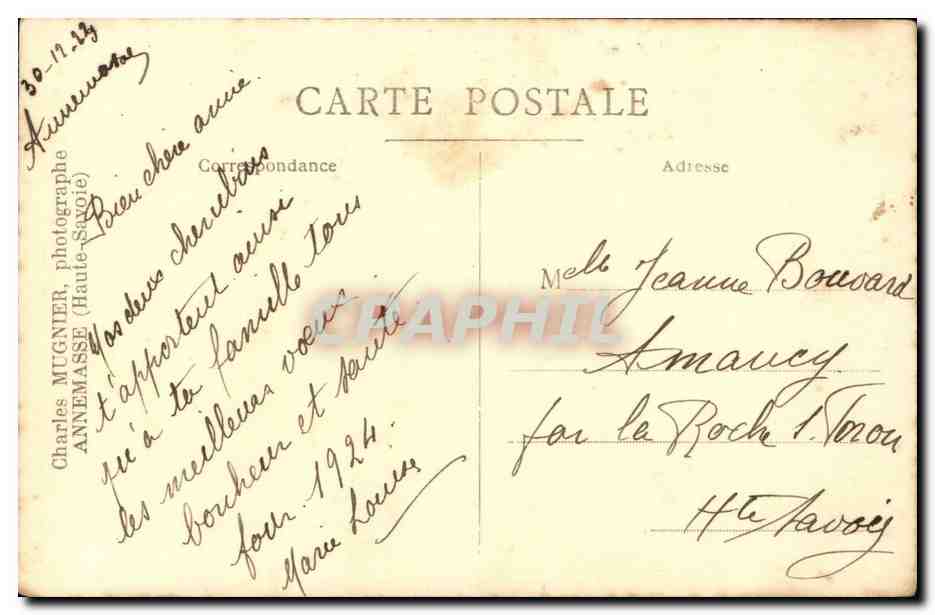 CARTE POSTALE
Correspondance
Adresse
Charles MUGNIER, photographe
ANNEMASSE (Haute-Savoie)
30-12-23
Annemasse
Bien chère amie
deux cherubins
t'apportent ainsi
qu'à ta famille tous
les meilleurs vœux
bonheur et santé
pour 1924.
Marie Louise
Melle Jeanne Bouvard
Amancy
par la Roche s. Foron
Hte Savoie
CPAPHIL